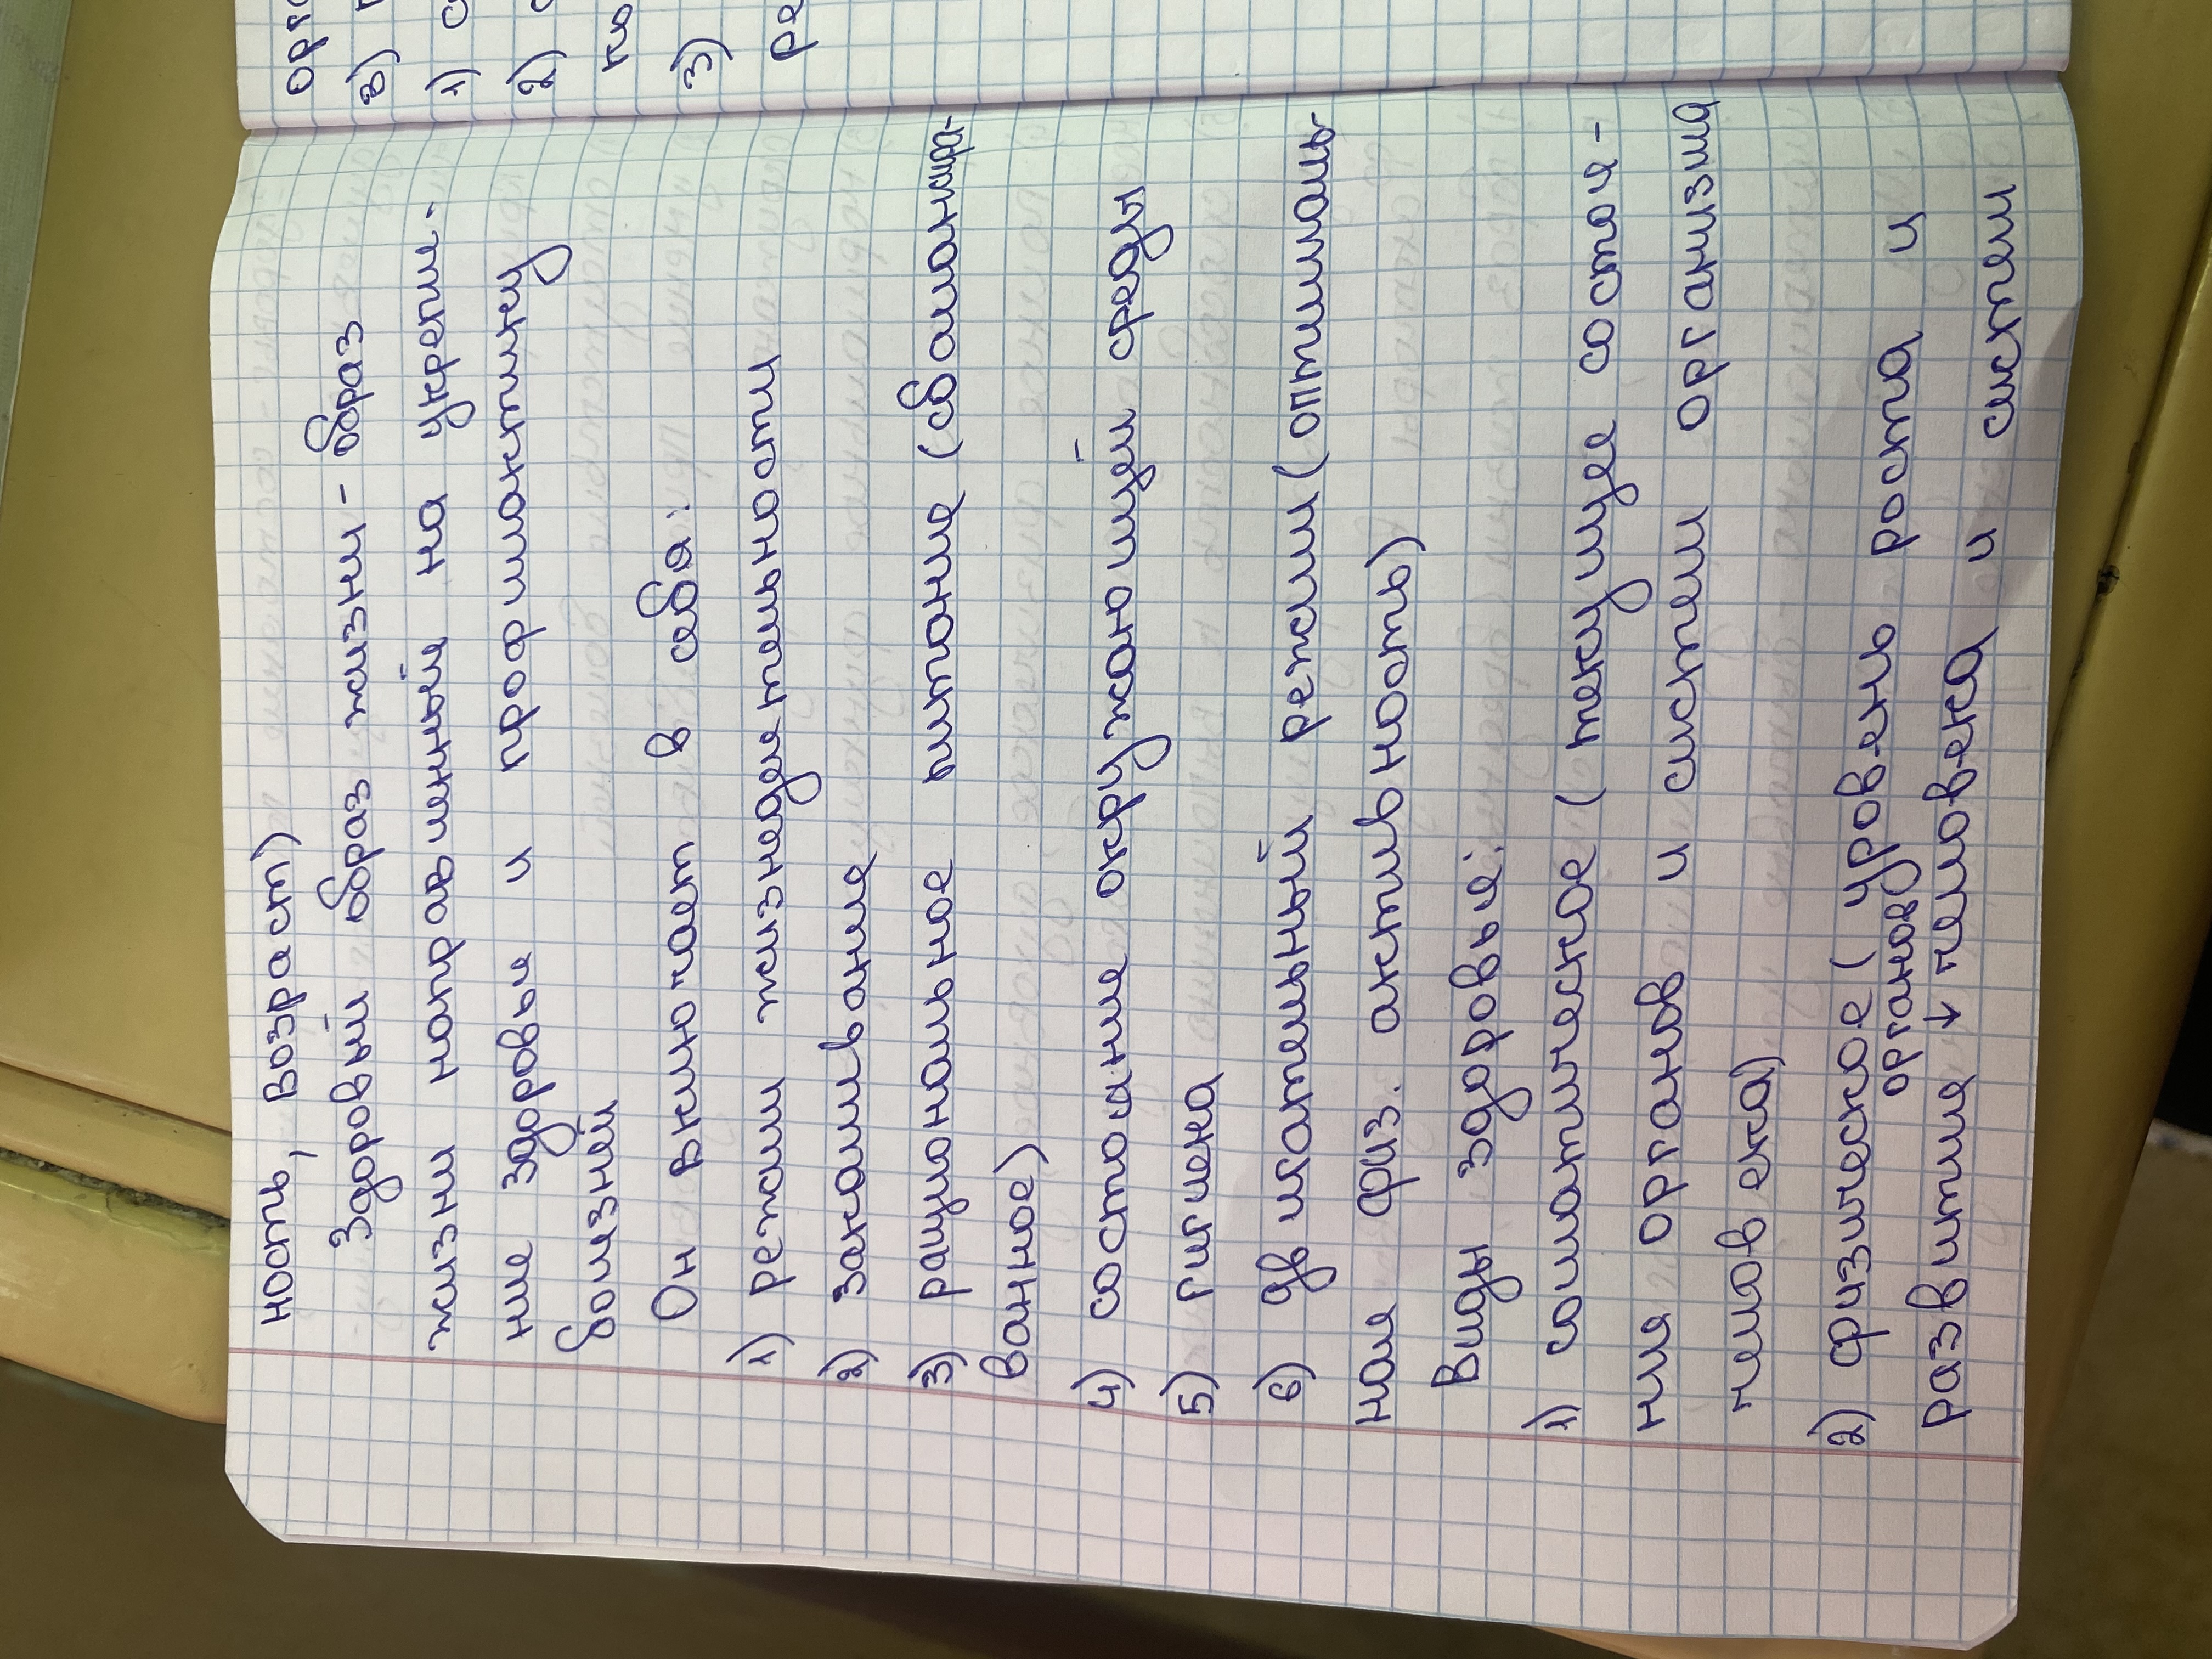 ность, возраст)
Здоровый образ жизни - образ
жизни направленный на укрепле-
ние здоровья и профилактику
болезней
Он включает в себя:
1) режим жизнедеятельности
2) закаливание
3) рациональное питание (сбалансиро-
ванное)
4) состояние окружающей среды
5) гигиена
6) двигательный режим (оптималь-
ная физ. активность)
Виды здоровья:
1) соматическое (текущее состоя-
ния органов и систем организма
человека)
2) физическое (уровень роста и
органов
развития ↓ человека и систем
орг
3)
1) с
2)
3)
ре